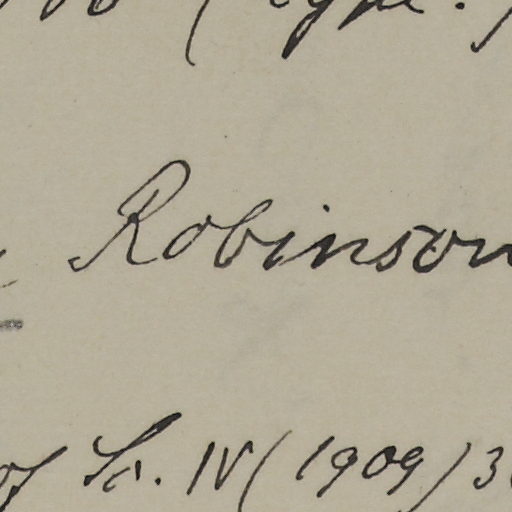 (Type.)
Robinson
of Sc. IV (1909) 3